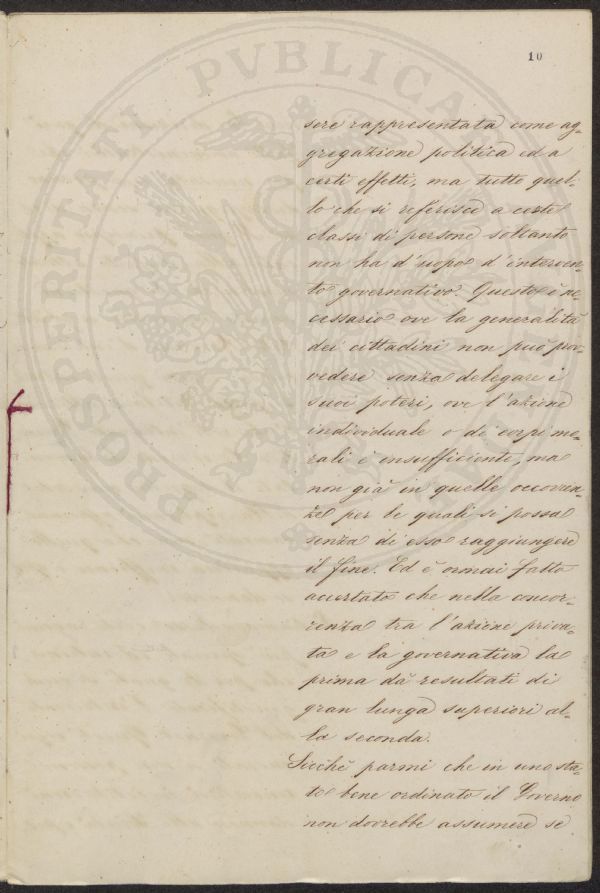 10
sere rappresentata come ag-
gregazione politica ed a
certi effetti, ma tutto quel-
lo che si referisce a certe
classi di persone soltanto
non ha d'uopo d'interven-
to governativo. Questo è ne-
cessario ove la generalità
dei cittadini non può prov-
vedere senza delegare i
suoi poteri, ove l'azione
individuale o di corpi mo-
rali è insufficiente, ma
non già in quelle occoren-
ze per le quali si possa
senza di esso raggiungere
il fine. Ed è ormai fatto
accertato che nella concor-
renza tra l'azione priva-
ta e la governativa la
prima dà resultati di
gran lunga superiori al-
la seconda.
Sicchè parmi che in uno sta-
to bene ordinato il Governo
non dovrebbe assumere se
PROSPERITATI PVBLICAE